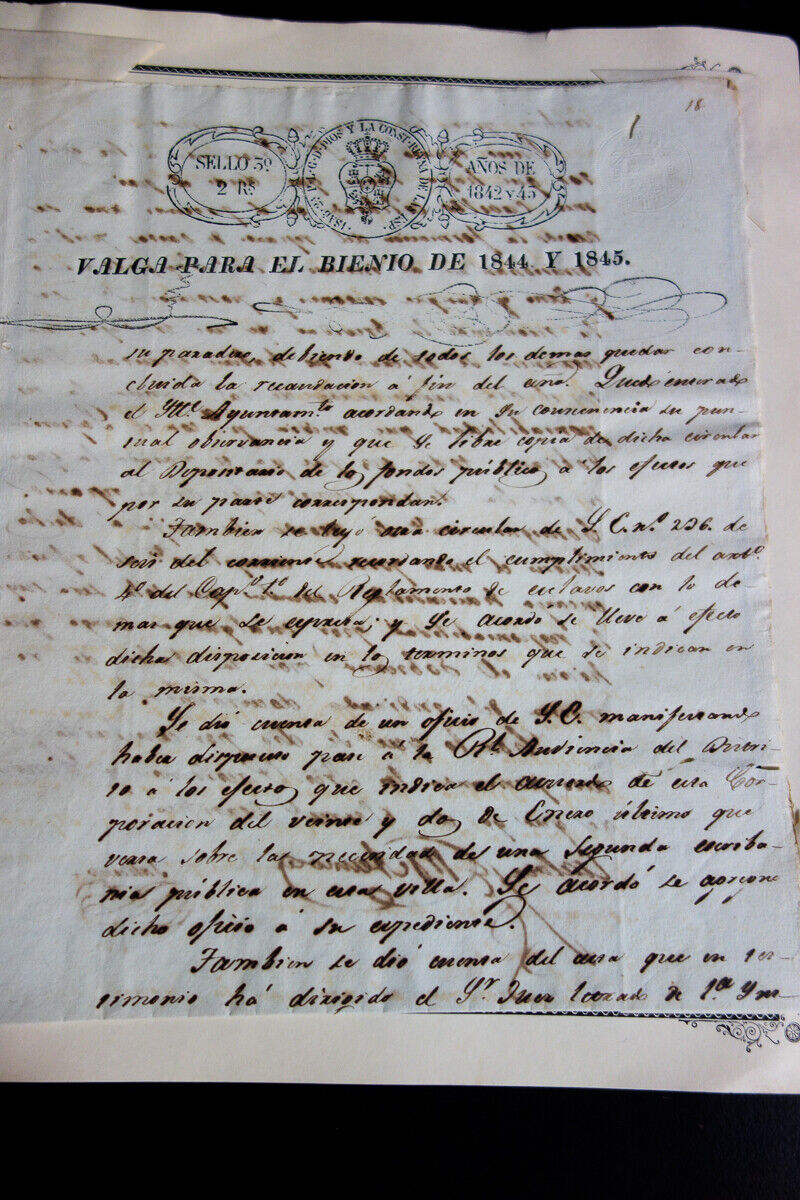 18.
SELLO 3º
2 Rs
P. L. G. D. DIOS Y LA CONST. REYNA DE LAS ESP.
AÑOS DE
1842 y 43
VALGA PARA EL BIENIO DE 1844 Y 1845.
su paradero, debiendo de todos los demas quedar con-
cluida la recaudacion á fin del año. Quedó enterado
el Ittê. Ayuntamto acordando en su consecuencia su pun-
tual observancia y que se libre copia de dicha circular
al Depositario de los fondos públicos a los efectos que
por su parte correspondan.
Tambien se leyó otra circular de S. E. nº 236. de
seis del corriente recordando el cumplimiento del artº
4º del Capº 1º del Reglamento de esclavos con lo de-
mas que se espresa; y se acordó se lleve á efecto
dicha disposicion en los terminos que se indican en
la misma.
Se dió cuenta de un oficio de S. E. manifestando
haber dispuesto pase á la Rl Audiencia del Distri-
to á los efectos que indica el acuerdo de esta Cor-
poracion del veinte y dos de Enero último que
versa sobre la necesidad de una segunda escriba-
nia pública en esta villa. Se acordó se agregue
dicho oficio á su espediente.
Tambien se dió cuenta del que en tes-
timonio há dirigido el Sr Juez letrado de 1ª Yns-